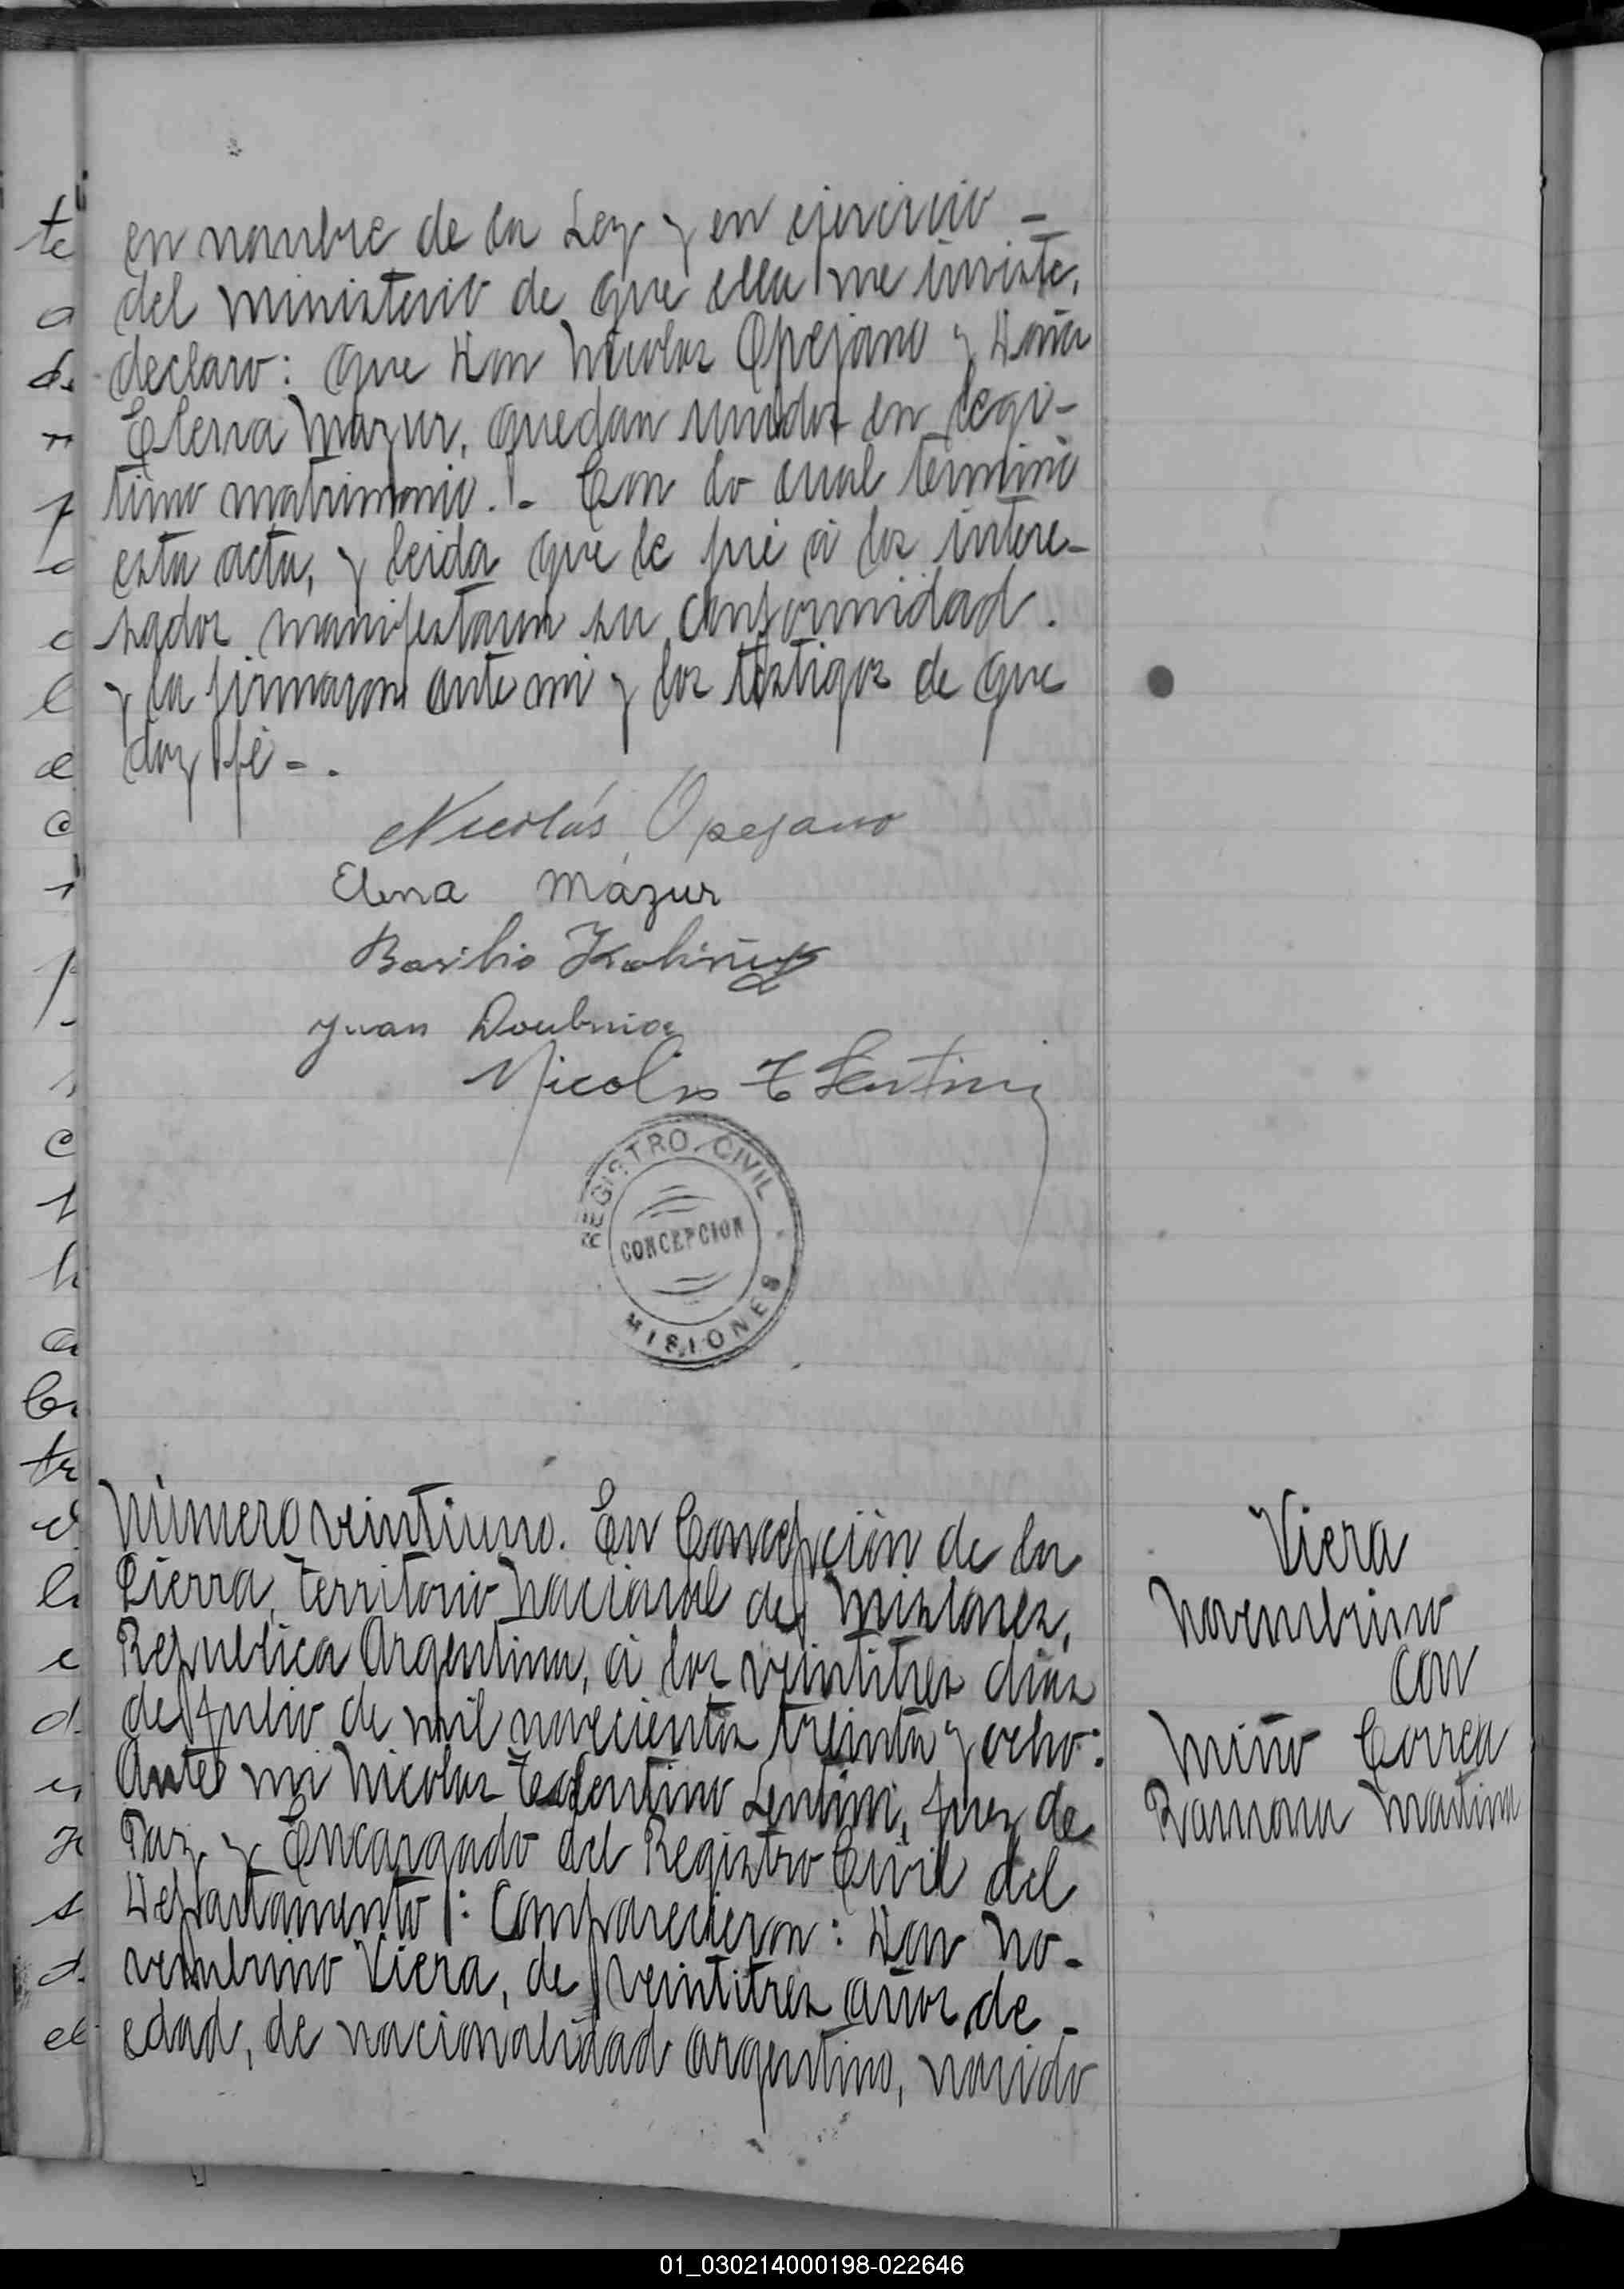 en nombre de la Ley y en ejercicio -
del ministerio de que ella me inviste,
declaro: que Don Nicolas Opejano y Doña
Elena Mazur, quedan unidos en legi-
timo matrimonio. !- Con lo cual terminó
esta acta, y leida que le fué á los intere-
sados manifestaron su conformidad.
y la firmaron ante mi y los testigos de que
doy fé - .
Nicolás Opejano
Elena Mázur
Basilio
Juan
Nicolas T Lentini
REGISTRO CIVIL
CONCEPCION
MISIONES
Número veintiuno. En Concepción de la
Sierra, Territorio Nacional de Misiones,
Republica Argentina, á los veintitres dias
de Julio de mil novecientos treinta y ocho:
Ante mi Nicolas Lentini, Juez de
Paz y Encargado del Registro Civil del
Departamento: Comparecieron: Don No-
vembrino Viera, de veintitres años de -
edad, de nacionalidad argentino, nacido
Viera
Novembrino
con
Miño Correa
Ramona Martina
01_030214000198-022646